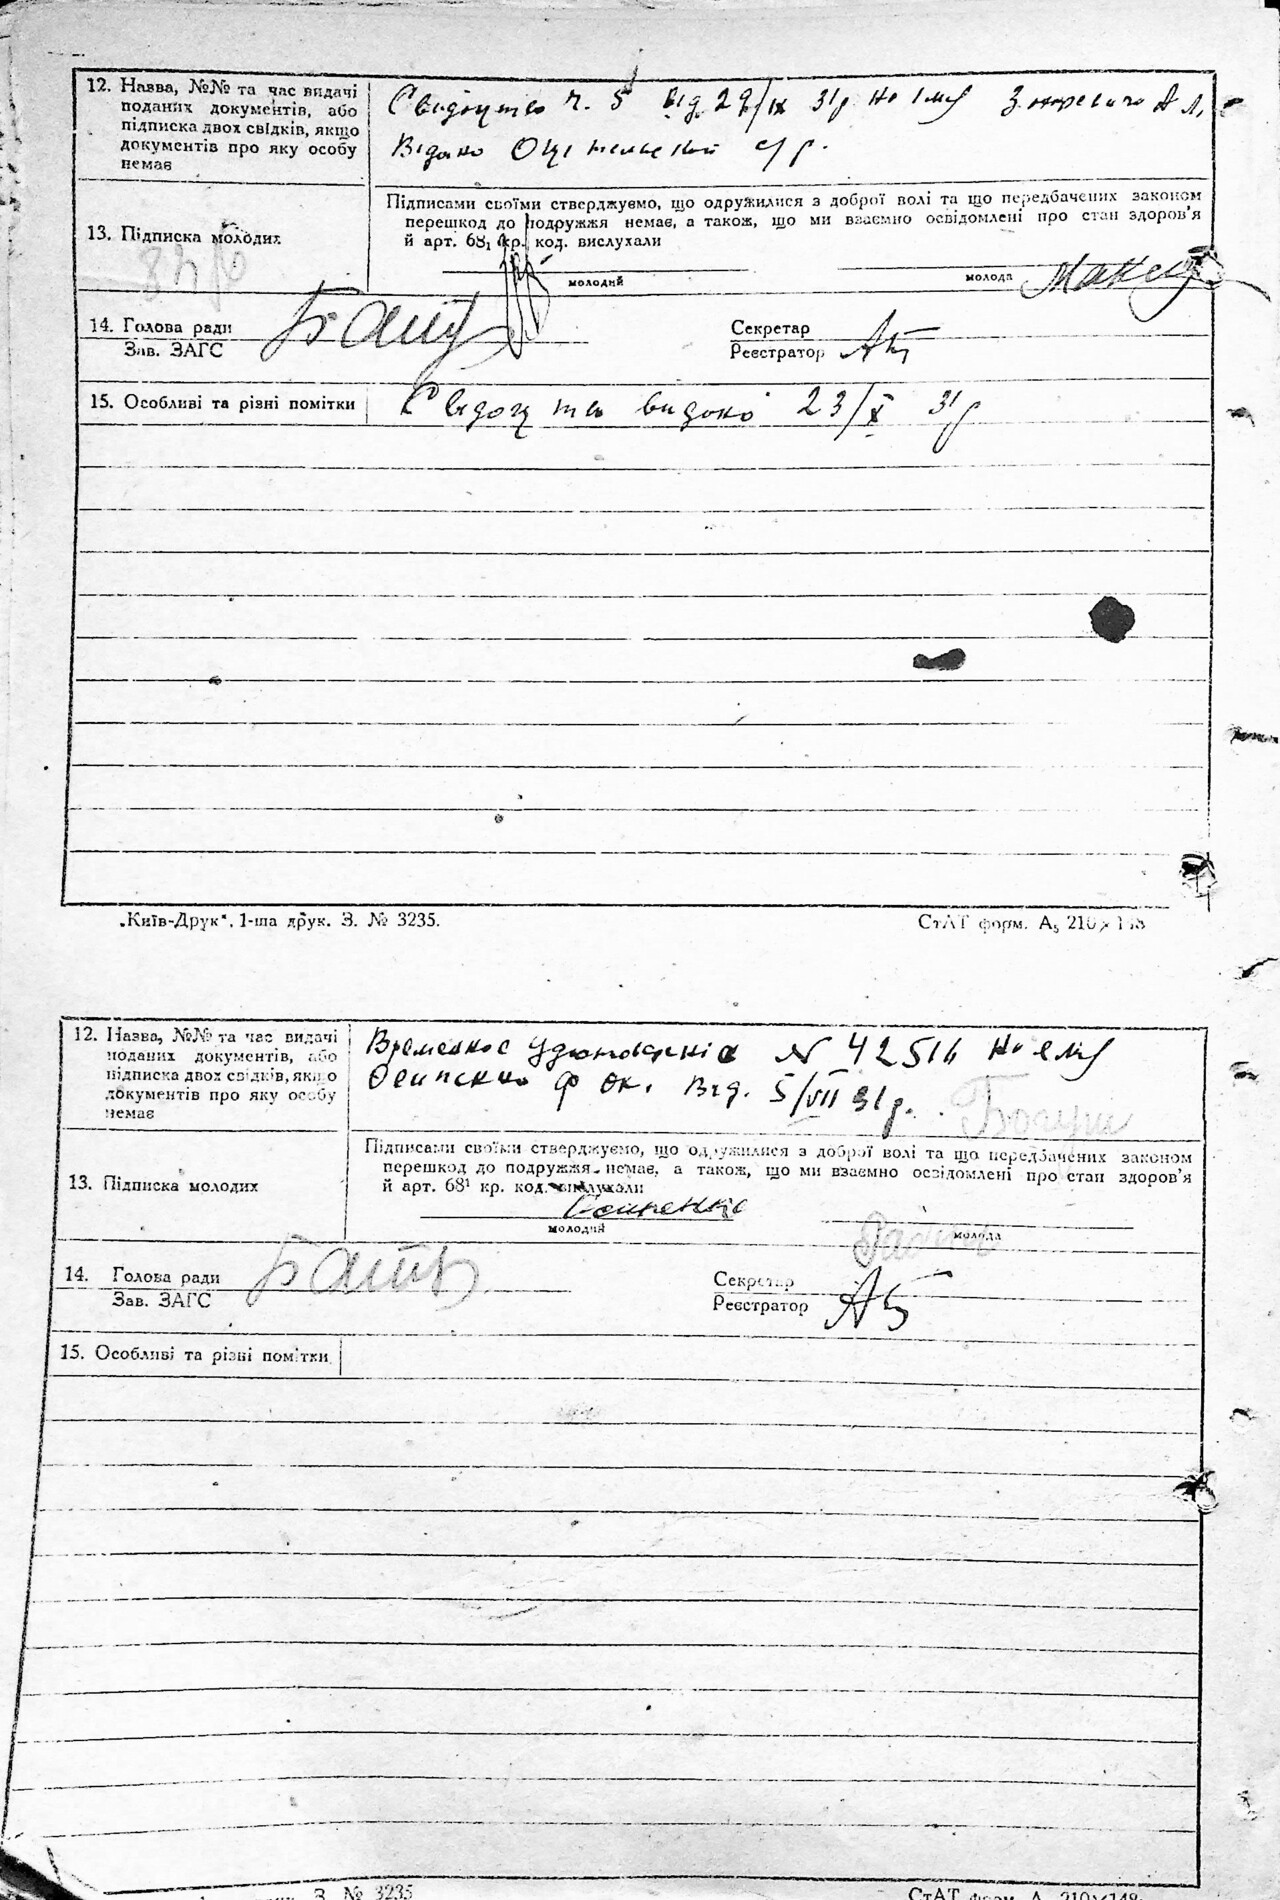 12. Назва, №№ та час видачі
поданих документів, або
підписка двох свідків, якщо
документів про яку особу
немає
Свидоцтво ч. 5 від 29/IX 31р на імя А Л.
Відано с/р.
13. Підписка молодих
Підписами своїми стверджуємо, що одружилися з доброї волі та що передбачених законом
перешкод до подружжя немає, а також, що ми взаємно освідомлені про стан здоров'я
й арт. 68₁ кр. код. вислухали
молодий
молода
14. Голова ради
Зав. ЗАГС
Секретар
Реєстратор
15. Особливі та різні помітки
Свидоцтво видано 23/X 31р
„Київ-Друк“. 1-ша друк. З. № 3235.
СтАТ форм. А₅ 210×148
12. Назва, №№ та час видачі
поданих документів, або
підписка двох свідків, якщо
документів про яку особу
немає
Временное № 42516 на імя
Від. 5/VII 31р.
Богуш
13. Підписка молодих
Підписами своїми стверджуємо, що одружилися з доброї волі та що передбачених законом
перешкод до подружжя немає, а також, що ми взаємно освідомлені про стан здоров'я
й арт. 68¹ кр. код. вислухали
молодий
молода
14. Голова ради
Зав. ЗАГС
Секретар
Реєстратор
15. Особливі та різні помітки
З. № 3235
СтАТ форм. А 210×148